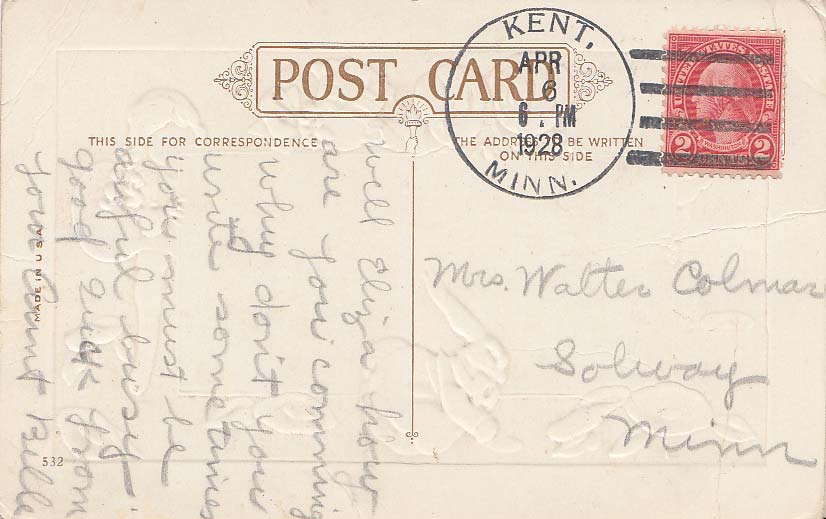 POST CARD
KENT,
APR
6
6 PM
1928
MINN.
UNITED STATES POSTAGE
WASHINGTON
2 CENTS 2
THIS SIDE FOR CORRESPONDENCE
THE ADDRESS TO BE WRITTEN
ON THIS SIDE
well Eliza how
are you comming
why don't you
write sometimes
you must be
awful busy
good luck from
your Aunt Bella
Mrs. Walter Colmar
Solway
Minn
MADE IN U.S.A.
532